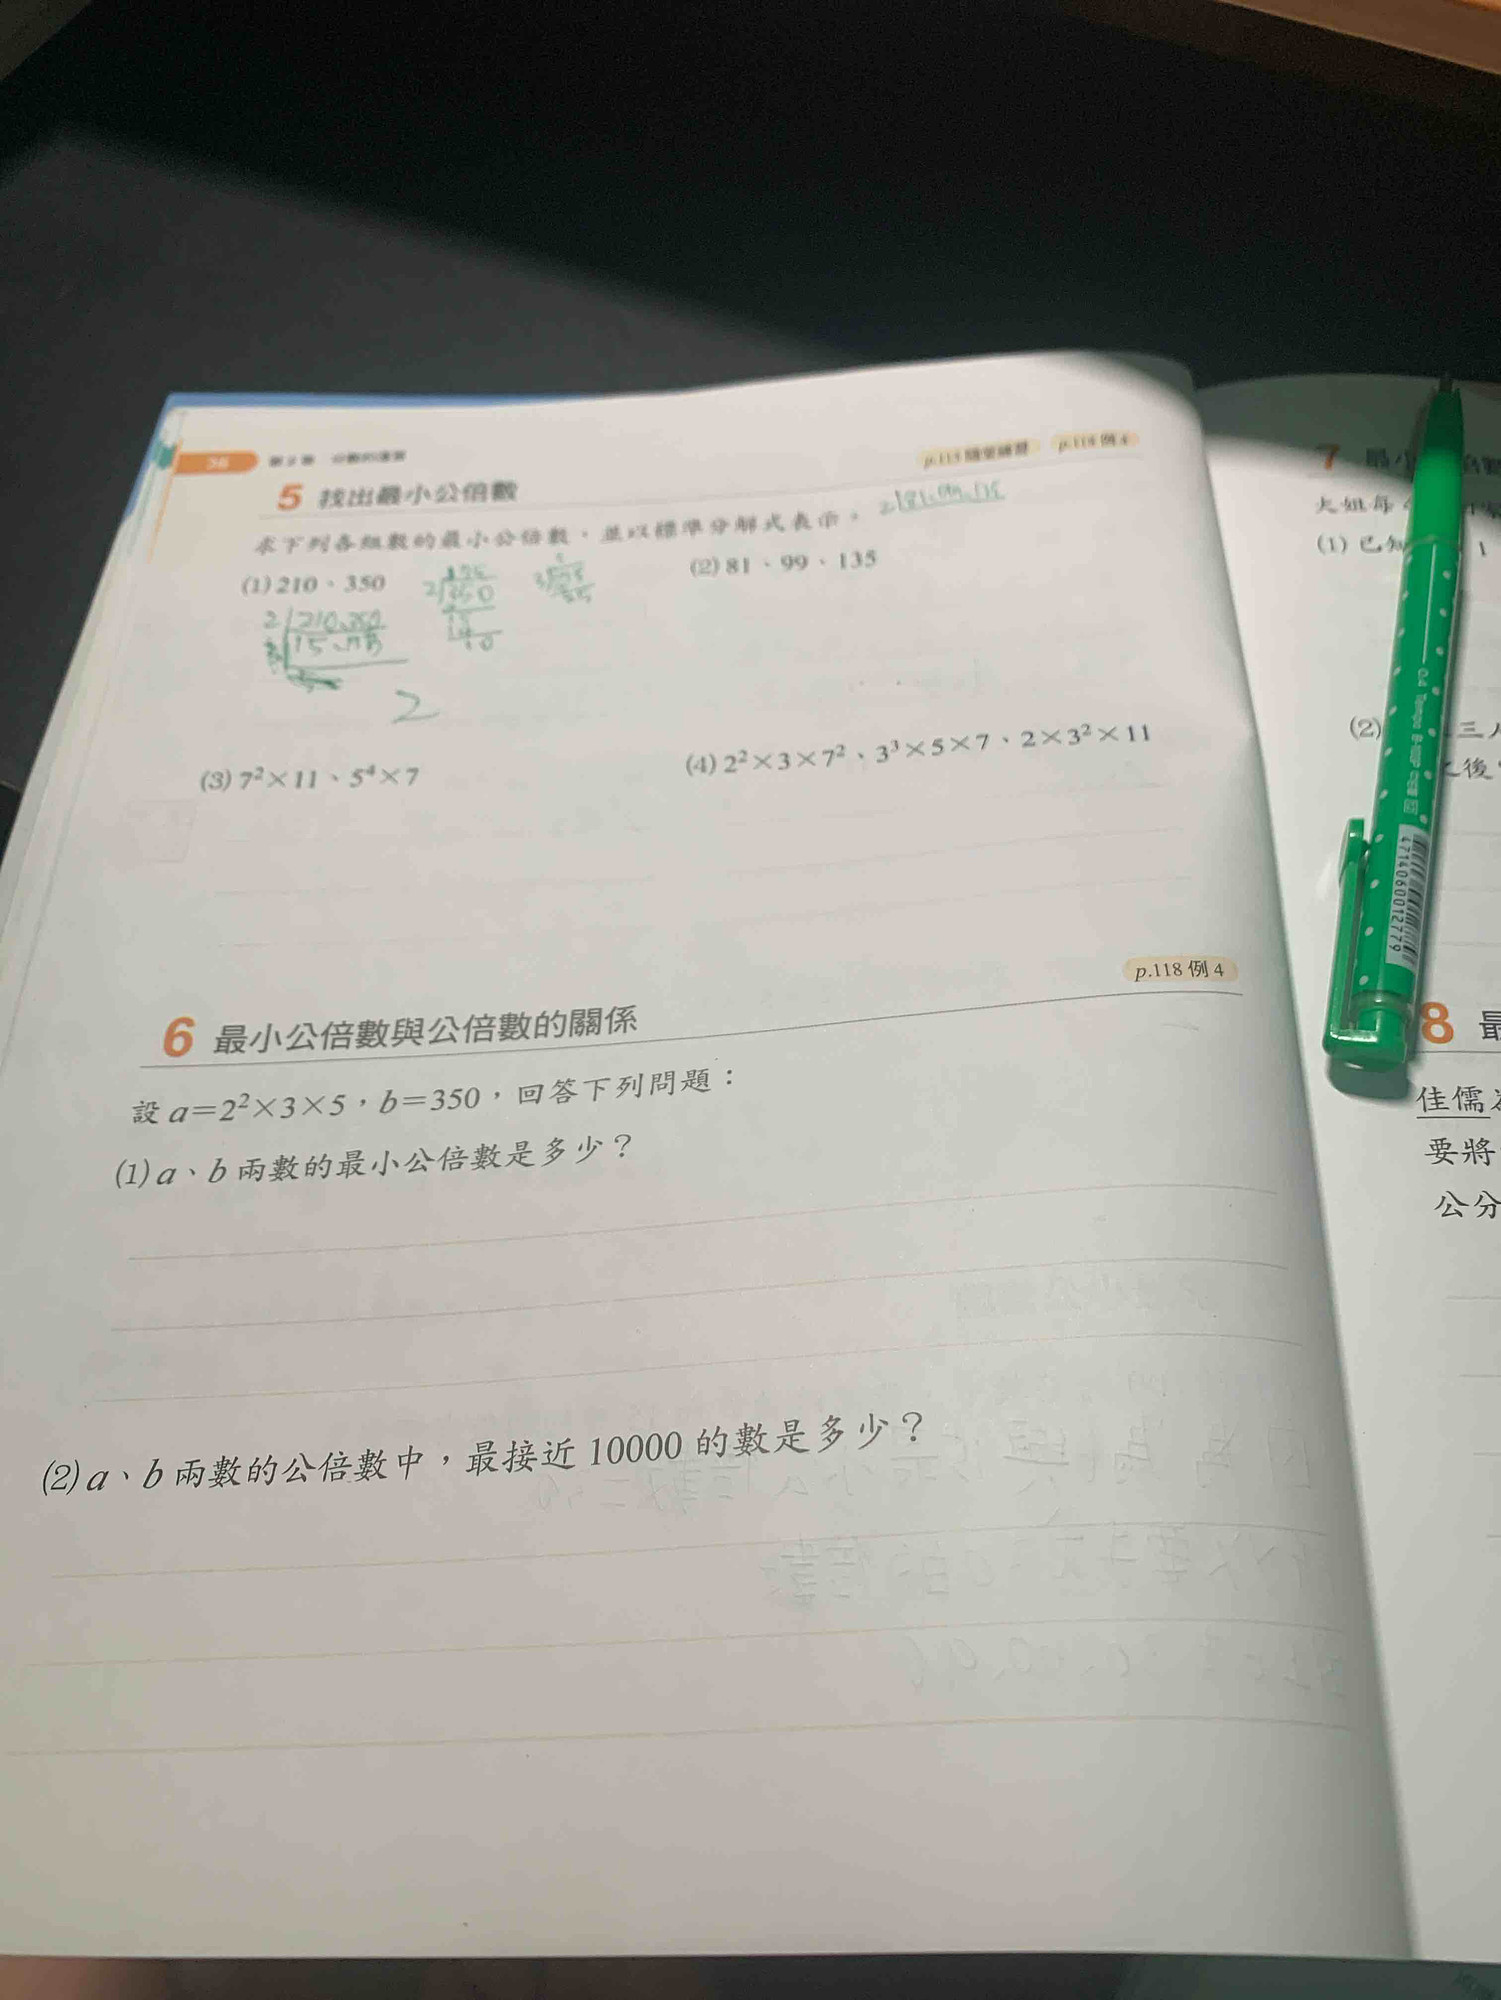 56 第2章 分數的運算
p.115 隨堂練習 p.118 例4
5 找出最小公倍數
求下列各組數的最小公倍數，並以標準分解式表示。
2 81、99、135
(1) 210、350
(2) 81、99、135
2 210、350
2 350
(3) 7²×11、5⁴×7
(4) 2²×3×7²、3³×5×7、2×3²×11
p.118 例4
6 最小公倍數與公倍數的關係
設 a=2²×3×5，b=350，回答下列問題：
(1) a、b 兩數的最小公倍數是多少？
(2) a、b 兩數的公倍數中，最接近 10000 的數是多少？
7 最小
大姐每
(1) 已知
1
(2)
三人
之後
0.4 Tempo
4714060012779
8 最
佳儒
要將
公分